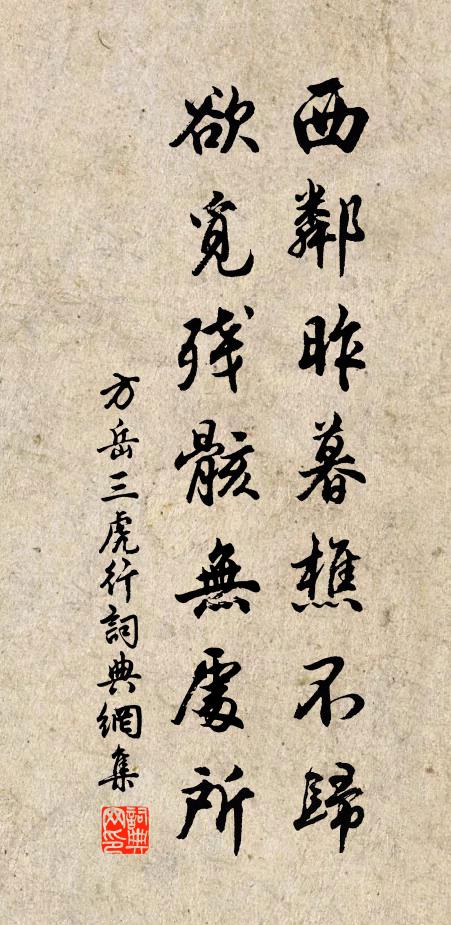 西鄰昨暮樵不歸
欲覓殘骸無處所
方岳三虎行詞典網集
詞典网印